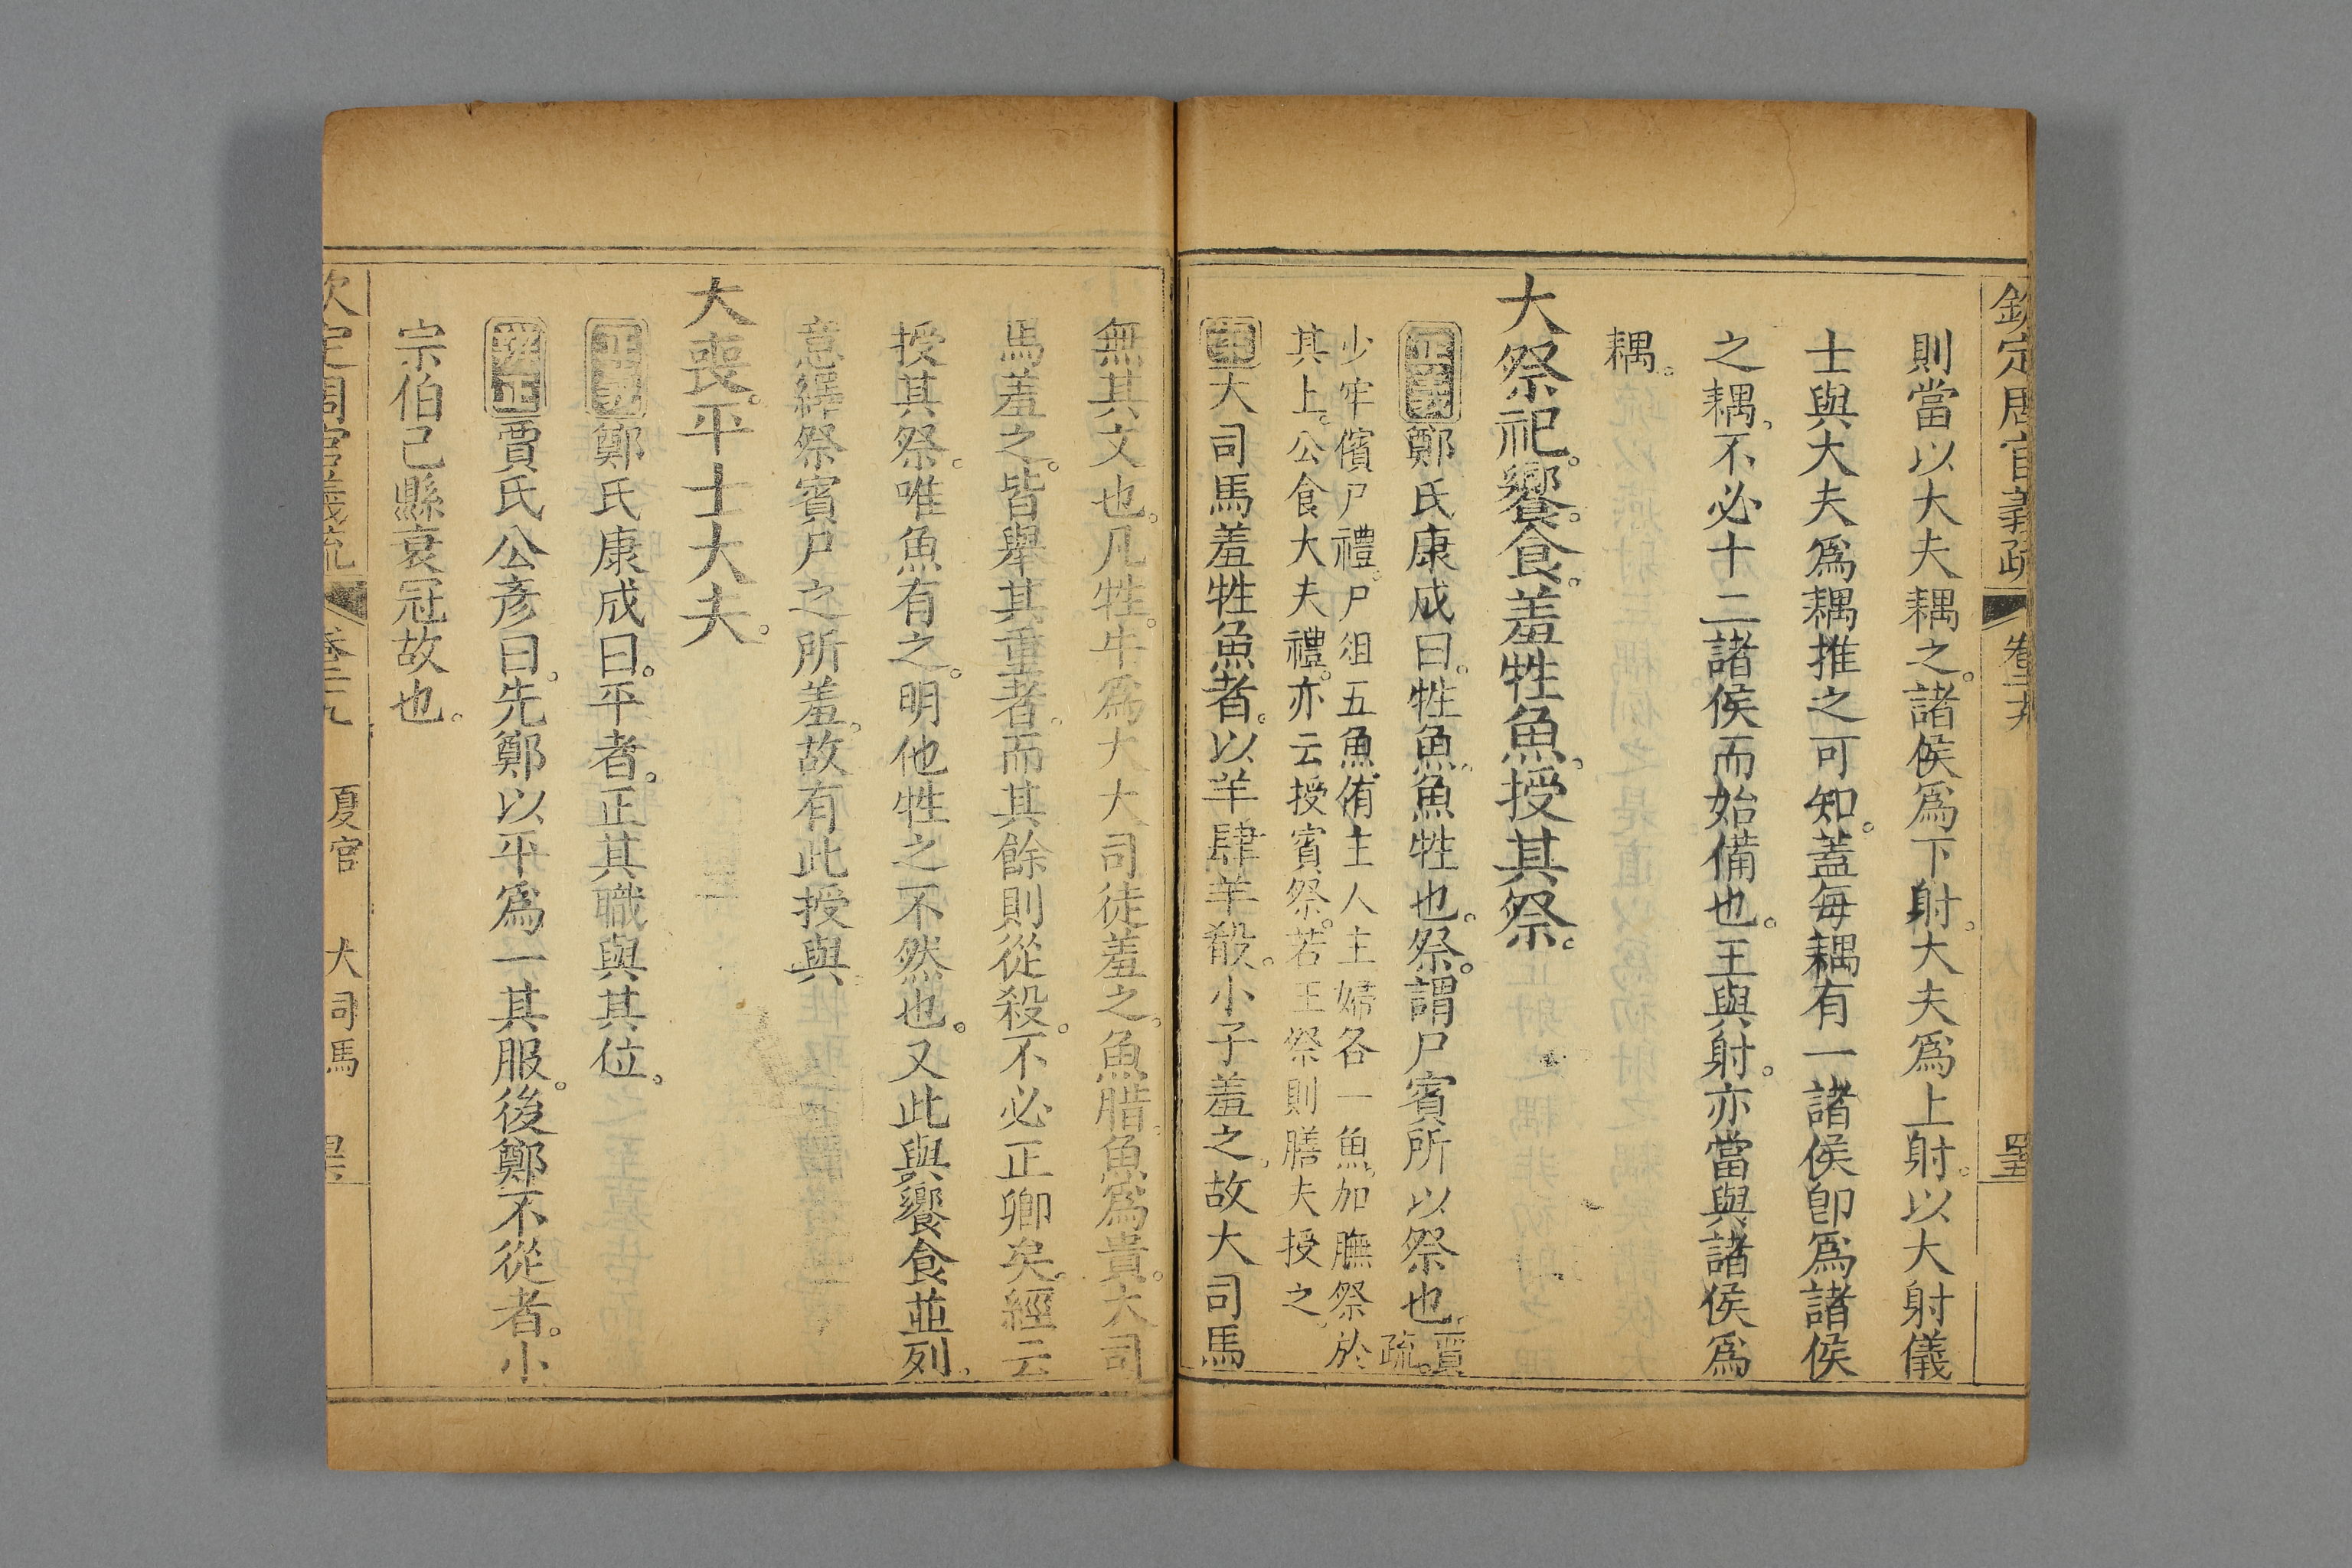 欽定周官義疏 卷二十九
則當以大夫耦之。諸侯爲下射。大夫爲上射。以大射儀
士與大夫爲耦推之可知。蓋每耦有一諸侯卽爲諸侯
之耦。不必十二諸侯而始備也。王與射。亦當與諸侯爲
耦。
大祭祀。饗食。羞牲魚。授其祭。
正義鄭氏康成曰。牲魚。魚牲也。祭。謂尸賓所以祭也。賈疏。
少牢儐尸禮。尸俎五魚。侑主人主婦各一魚。加膴祭於
其上。公食大夫禮。亦云授賓祭。若王祭則膳夫授之。
案大司馬羞牲魚者。以羊肆羊殽。小子羞之。故大司馬
無其文也。凡牲。牛爲大大司徒羞之。魚腊。魚爲貴。大司
馬羞之。皆舉其重者。而其餘則從殺。不必正卿矣。經云
授其祭。唯魚有之。明他牲之不然也。又此與饗食並列。
意繹祭賓尸之所羞。故有此授與。
大喪。平士大夫。
正義鄭氏康成曰。平者。正其職與其位。
辨正賈氏公彥曰。先鄭以平爲一其服。後鄭不從者。小
宗伯已縣衰冠故也。
欽定周官義疏 卷二十九 夏官 大司馬